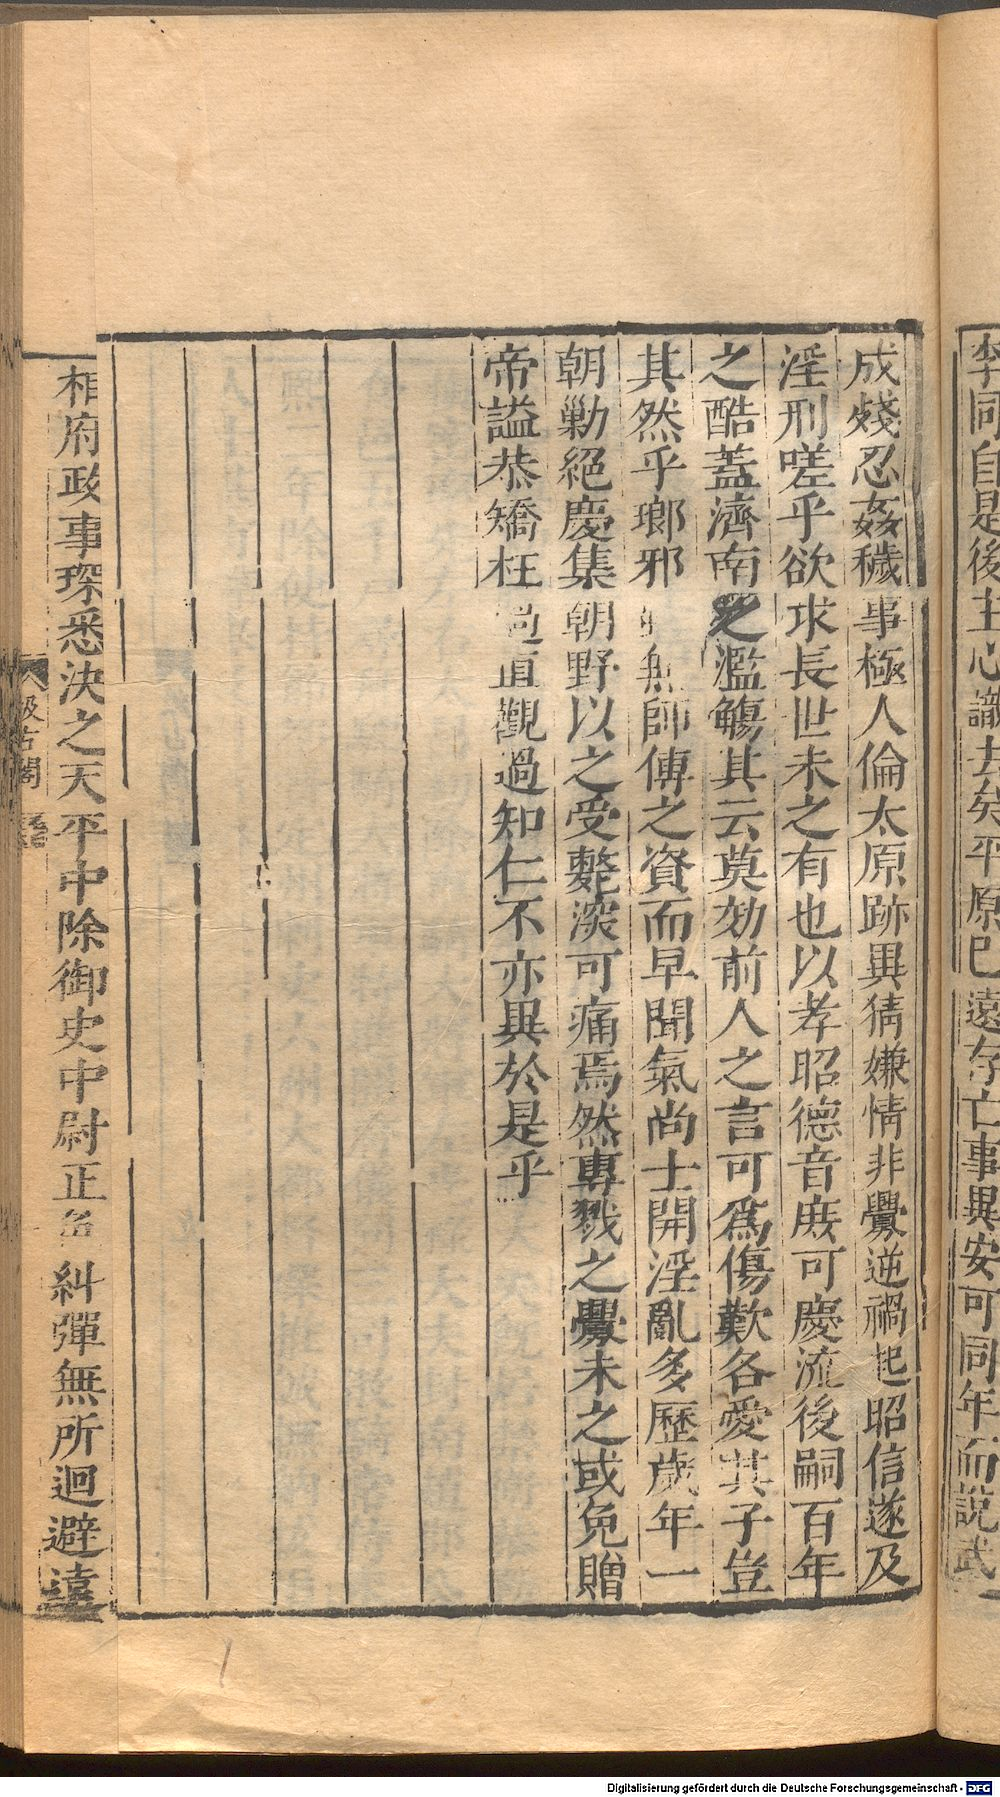 李同自是後主心識去矣平原已遠存亡事異安可同年而說武
成殘忍姦穢事極人倫太原跡異猜嫌情非舋逆禍起昭信遂及
淫刑嗟乎欲求長世未之有也以孝昭德音庶可慶流後嗣百年
之酷蓋濟南之濫觴其云莫効前人之言可爲傷歎各愛其子豈
其然乎瑯邪無師傅之資而早聞氣尚士開淫亂多歷歲年一
朝勦絕慶集朝野以之受斃深可痛焉然專戮之舋未之或免贈
帝謚恭矯枉過直觀過知仁不亦異於是乎
汲古閣
相府政事琛悉決之天平中除御史中尉正色糾彈無所迴避遠
Digitalisierung gefördert durch die Deutsche Forschungsgemeinschaft - DFG